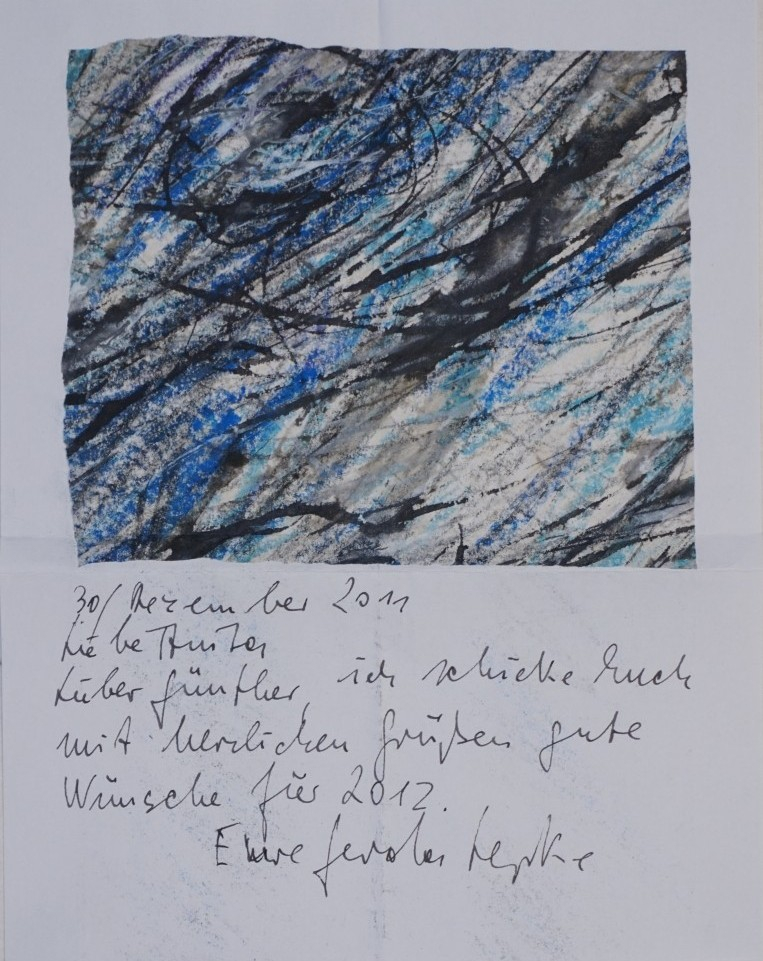 30/Dezember 2011
Liebe
Lieber Günther, ich schicke Euch
mit herzlichen Grüßen gute
Wünsche für 2012.
Eure Gerda Lepke